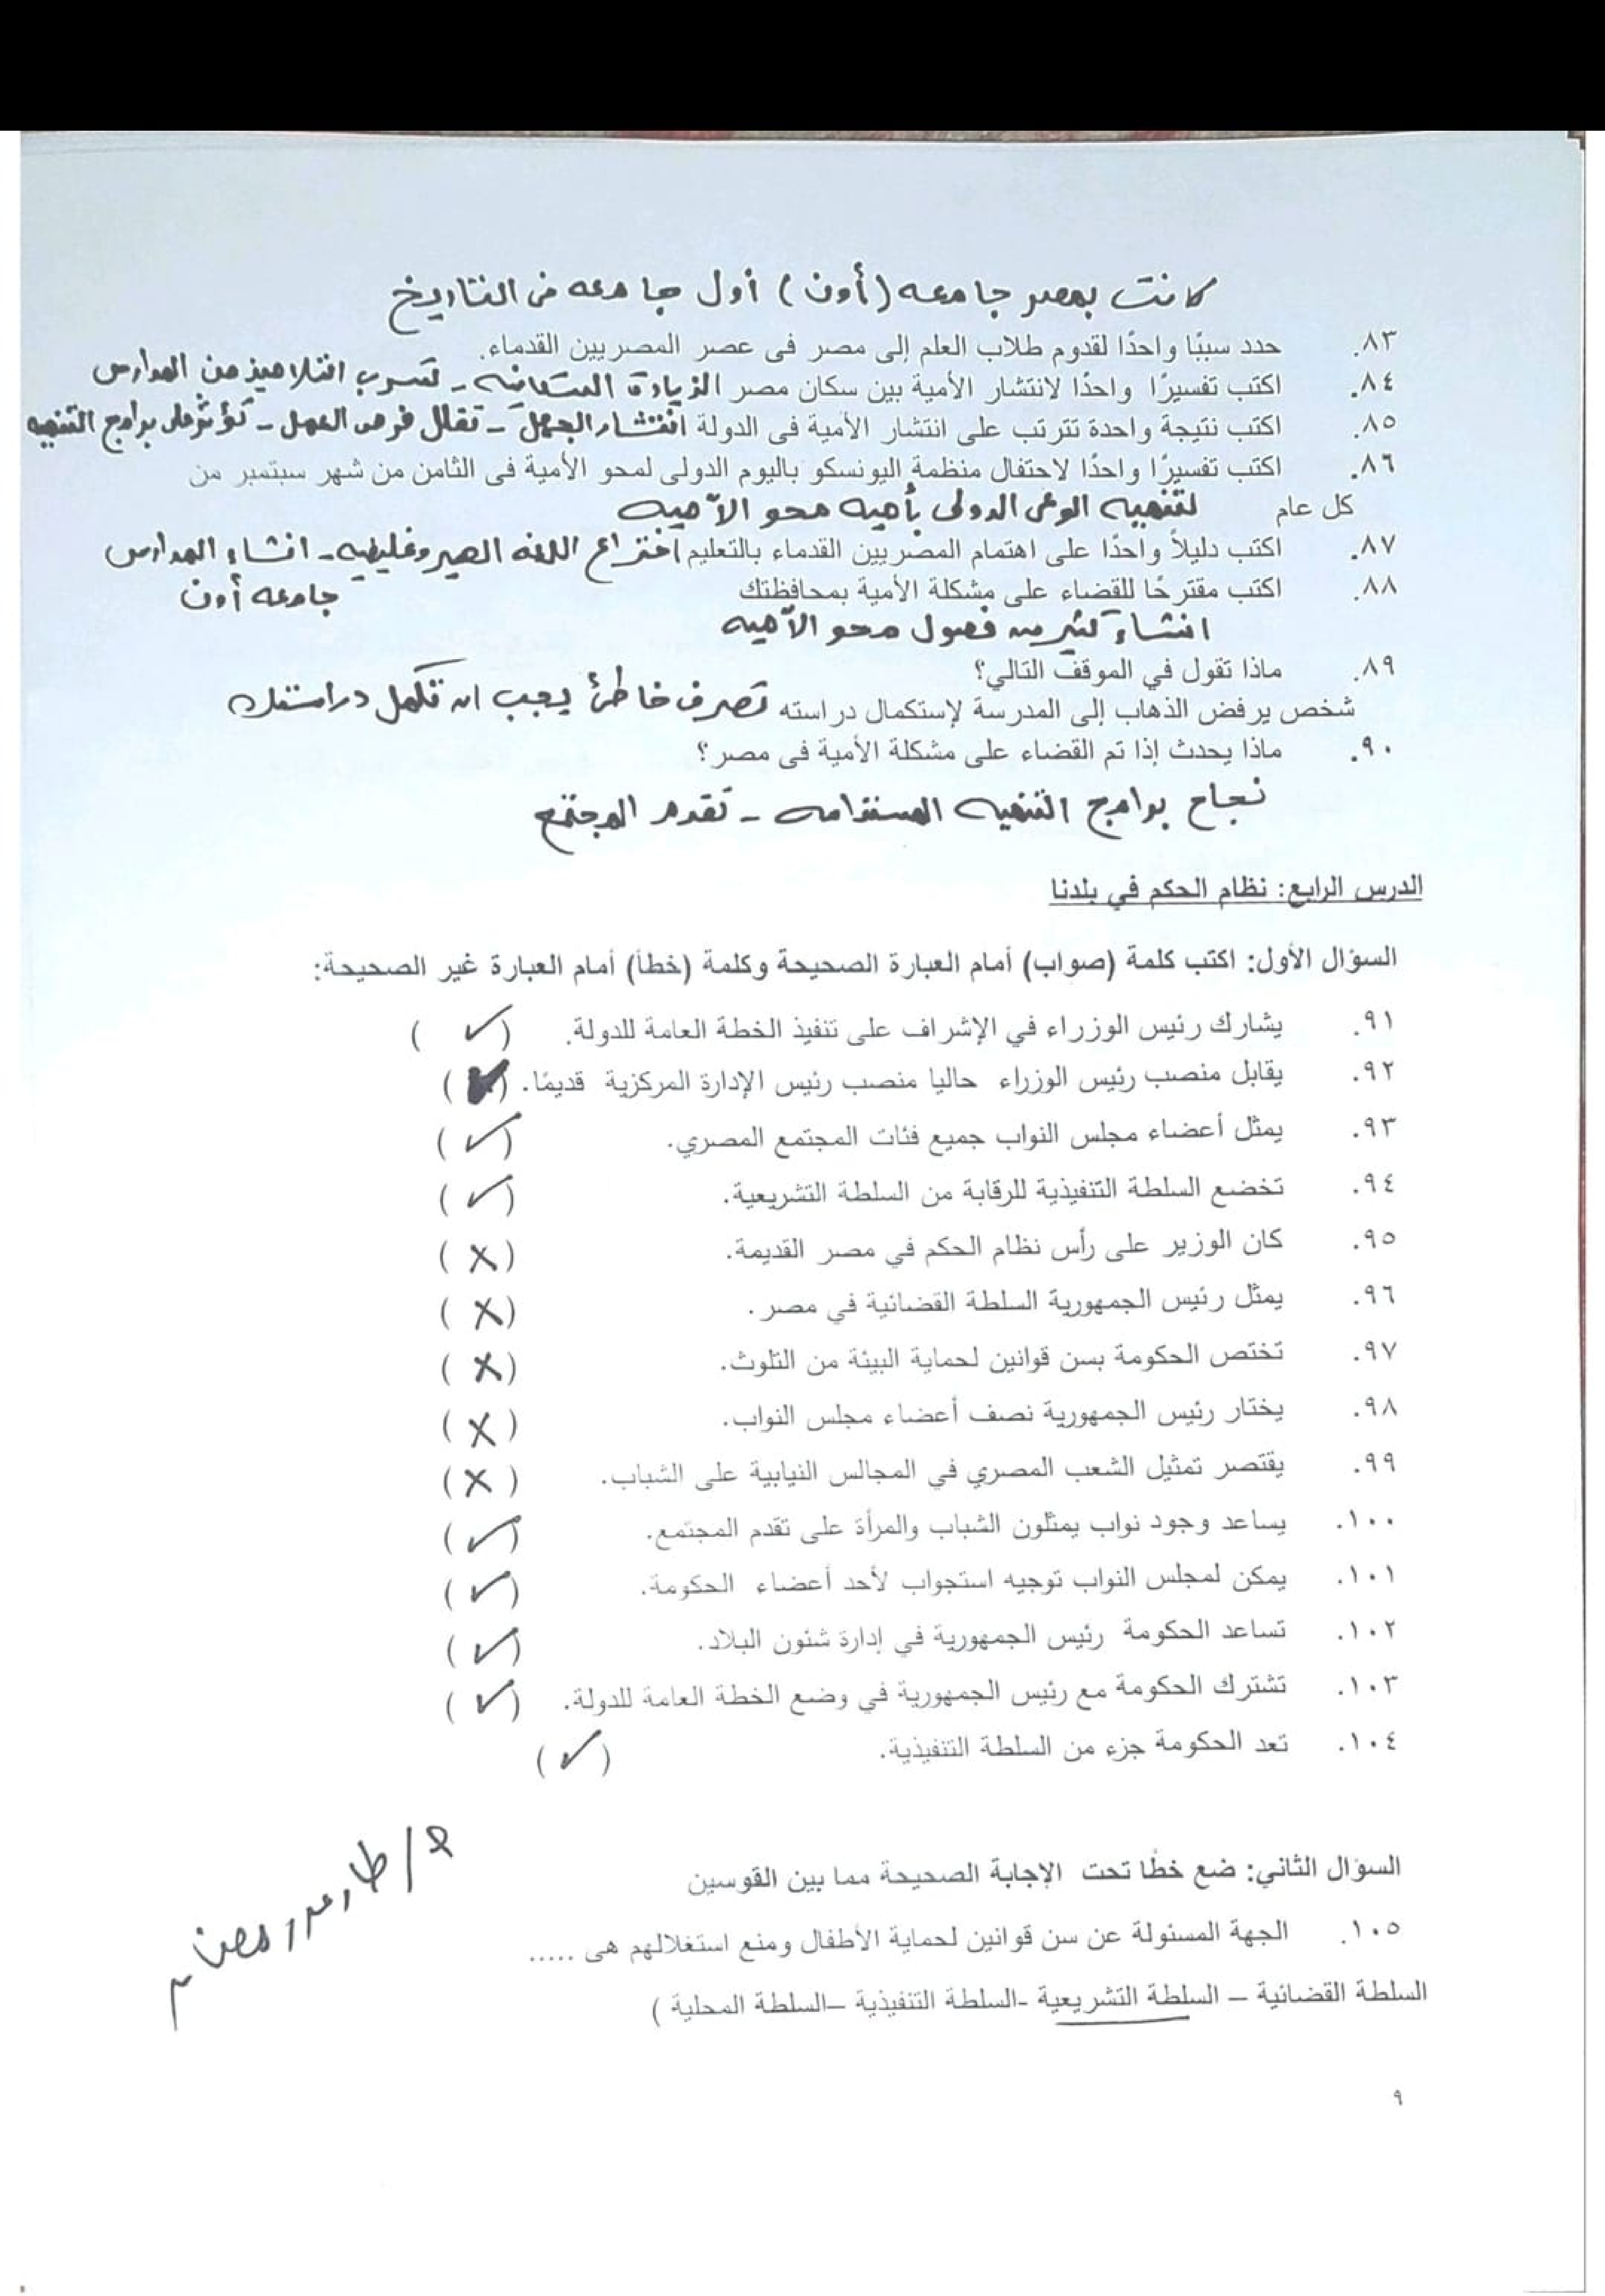 كانت بمصر جامعه (أون) أول جامعه في التاريخ
٨٣. حدد سببًا واحدًا لقدوم طلاب العلم إلى مصر فى عصر المصريين القدماء.
٨٤. اكتب تفسيرًا واحدًا لانتشار الأمية بين سكان مصر الزيادة السكانيه - تسرب التلاميذ من المدارس
٨٥. اكتب نتيجة واحدة تترتب على انتشار الأمية فى الدولة انتشار الجهل - تقلل فرص العمل - تؤثر على برامج التنميه
٨٦. اكتب تفسيرًا واحدًا لاحتفال منظمة اليونسكو باليوم الدولى لمحو الأمية فى الثامن من شهر سبتمبر من
كل عام لتنميه الوعى الدولى بأهميه محو الأميه
٨٧. اكتب دليلاً واحدًا على اهتمام المصريين القدماء بالتعليم اختراع اللغه الهيروغليفيه - انشاء المدارس
جامعه أون
٨٨. اكتب مقترحًا للقضاء على مشكلة الأمية بمحافظتك
انشاء كثير من فصول محو الأميه
٨٩. ماذا تقول في الموقف التالي؟
شخص يرفض الذهاب إلى المدرسة لإستكمال دراسته تصرف خاطئ يجب ان تكمل دراستك
٩٠. ماذا يحدث إذا تم القضاء على مشكلة الأمية فى مصر؟
نجاح برامج التنميه المستدامه - تقدم المجتمع
الدرس الرابع: نظام الحكم في بلدنا
السؤال الأول: اكتب كلمة (صواب) أمام العبارة الصحيحة وكلمة (خطأ) أمام العبارة غير الصحيحة:
٩١. يشارك رئيس الوزراء في الإشراف على تنفيذ الخطة العامة للدولة. (✓)
٩٢. يقابل منصب رئيس الوزراء حاليا منصب رئيس الإدارة المركزية قديمًا. (✓)
٩٣. يمثل أعضاء مجلس النواب جميع فئات المجتمع المصري. (✓)
٩٤. تخضع السلطة التنفيذية للرقابة من السلطة التشريعية. (✓)
٩٥. كان الوزير على رأس نظام الحكم في مصر القديمة. (✗)
٩٦. يمثل رئيس الجمهورية السلطة القضائية في مصر. (✗)
٩٧. تختص الحكومة بسن قوانين لحماية البيئة من التلوث. (✗)
٩٨. يختار رئيس الجمهورية نصف أعضاء مجلس النواب. (✗)
٩٩. يقتصر تمثيل الشعب المصري في المجالس النيابية على الشباب. (✗)
١٠٠. يساعد وجود نواب يمثلون الشباب والمرأة على تقدم المجتمع. (✓)
١٠١. يمكن لمجلس النواب توجيه استجواب لأحد أعضاء الحكومة. (✓)
١٠٢. تساعد الحكومة رئيس الجمهورية في إدارة شئون البلاد. (✓)
١٠٣. تشترك الحكومة مع رئيس الجمهورية في وضع الخطة العامة للدولة. (✓)
١٠٤. تعد الحكومة جزء من السلطة التنفيذية. (✓)
السؤال الثاني: ضع خطًا تحت الإجابة الصحيحة مما بين القوسين
١٠٥. الجهة المسئولة عن سن قوانين لحماية الأطفال ومنع استغلالهم هى .....
السلطة القضائية – السلطة التشريعية -السلطة التنفيذية –السلطة المحلية )
٩